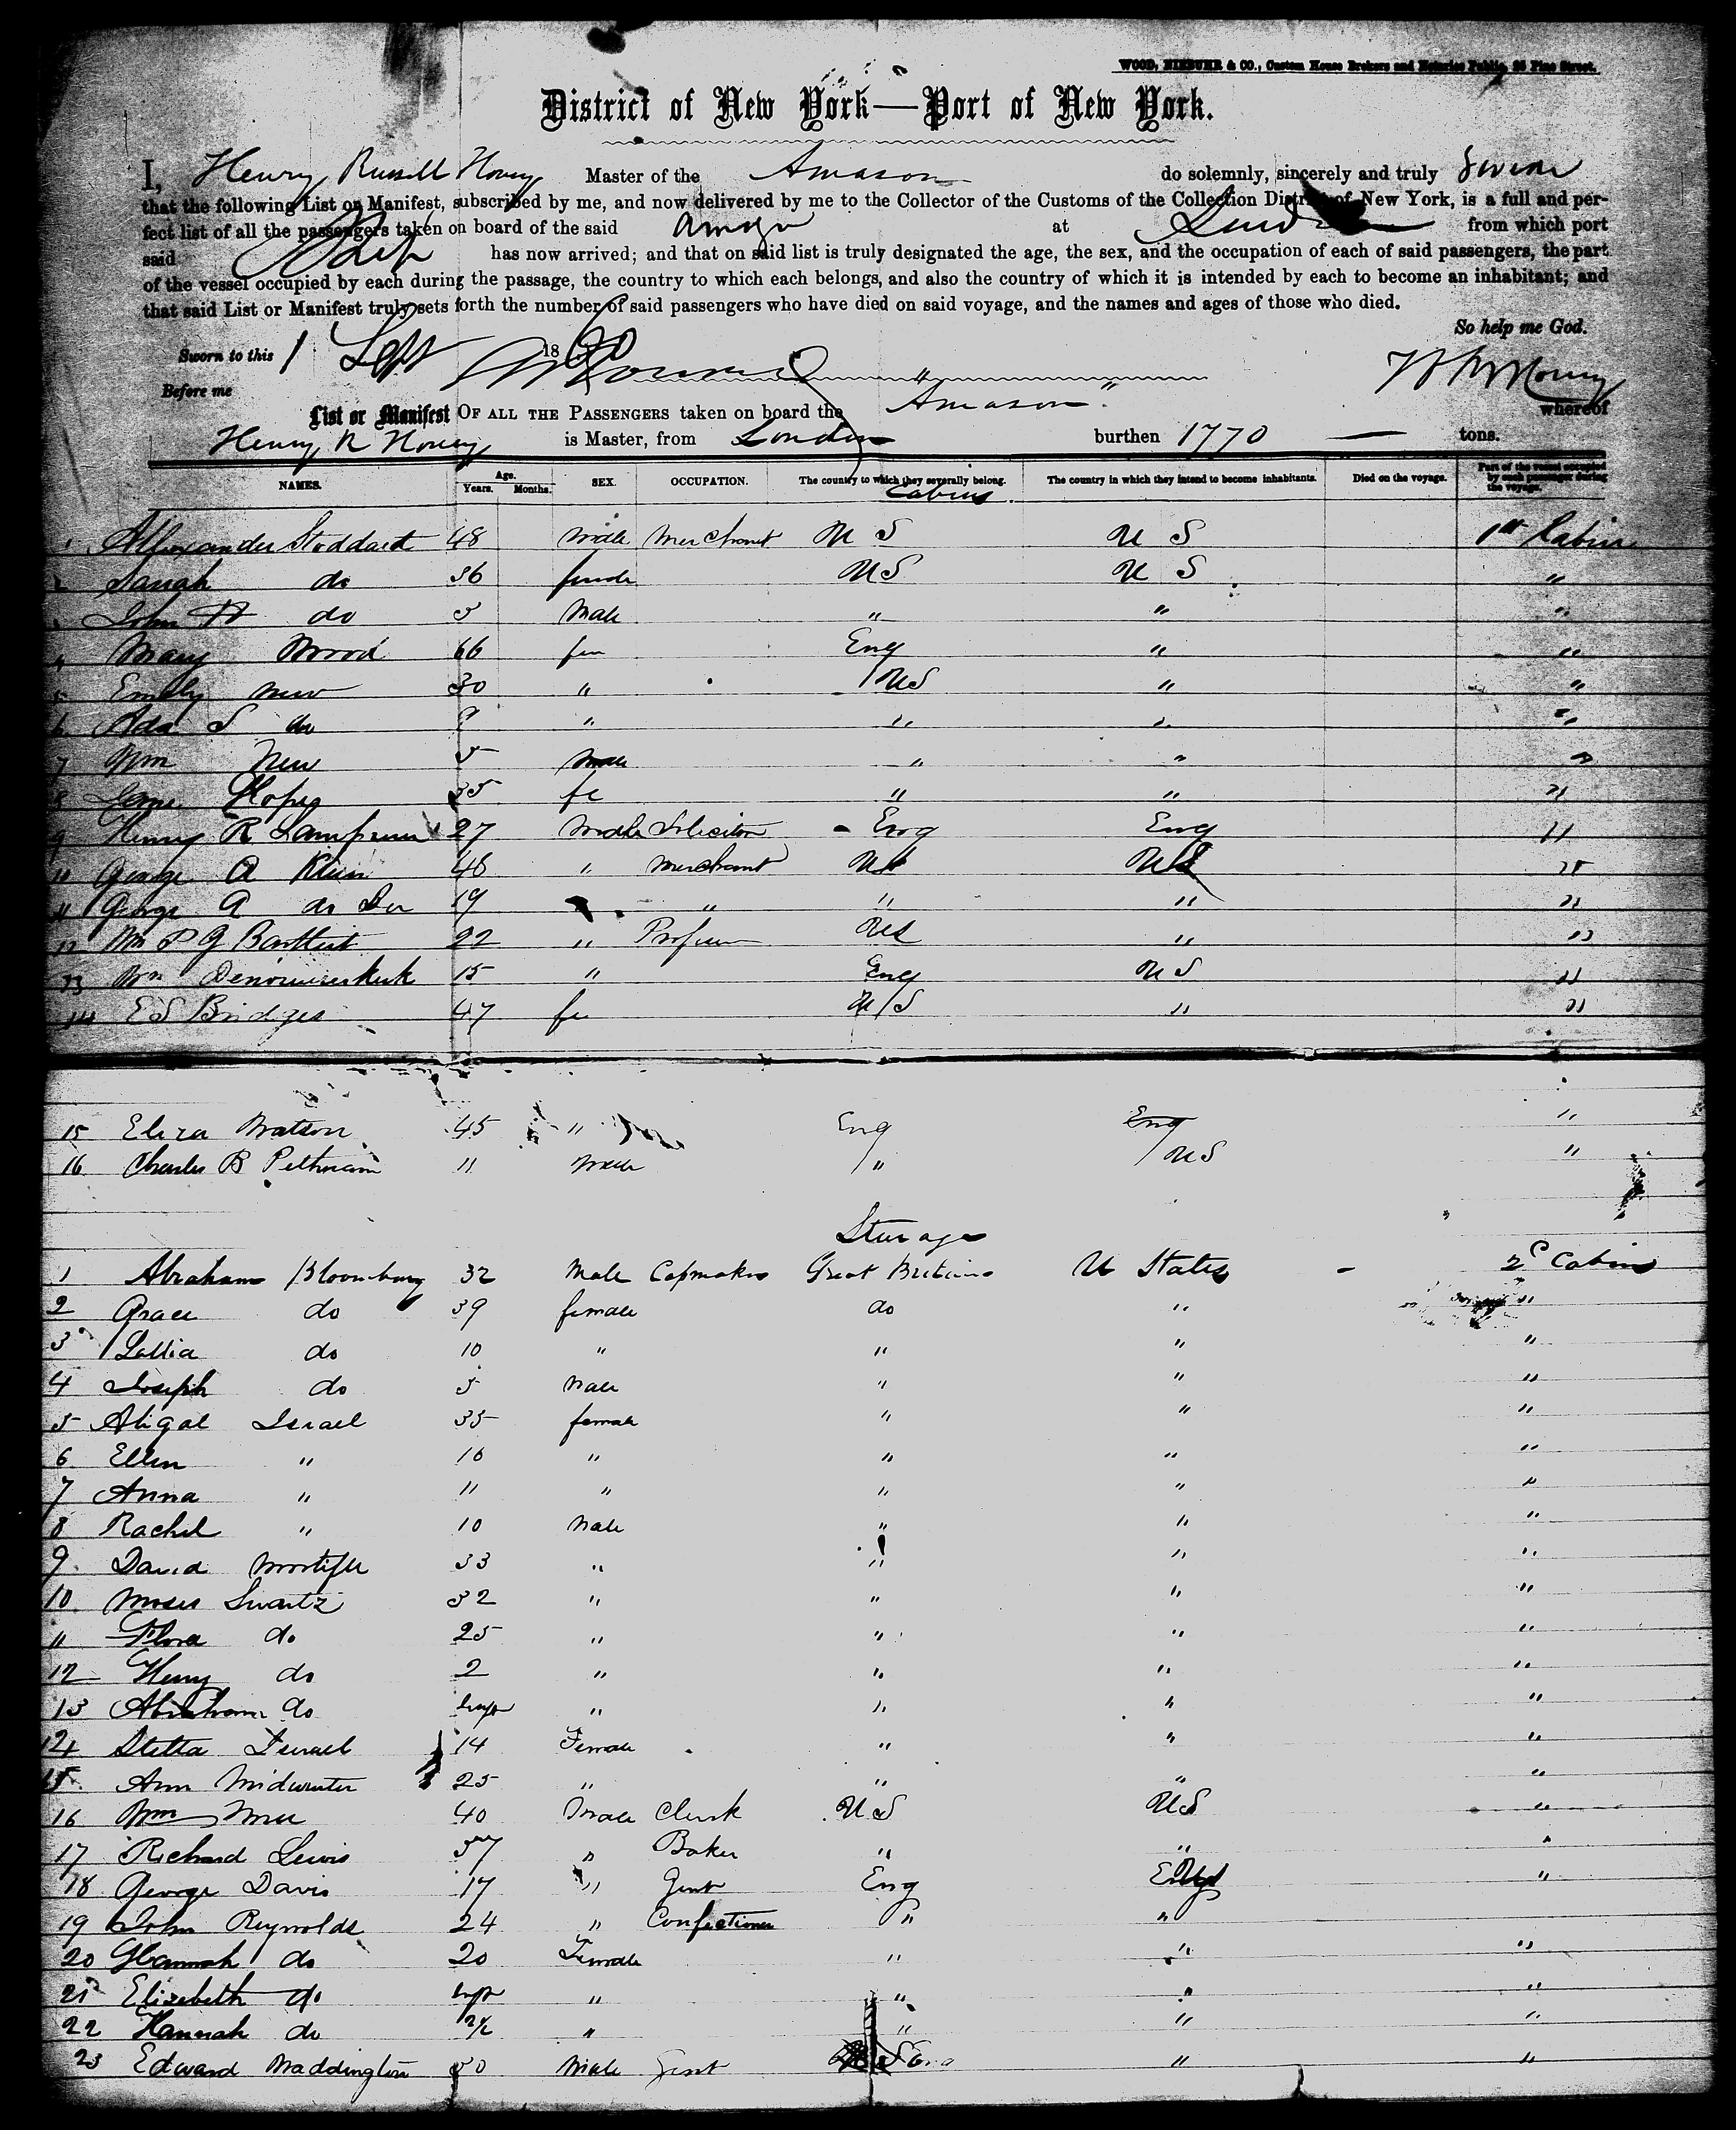 WOOD, NIEBUHR & CO., Custom House Brokers and Notaries Public, 25 Pine Street.
District of New York—Port of New York.
I, Henry Russell Hovey Master of the Amason do solemnly, sincerely and truly swear
that the following List or Manifest, subscribed by me, and now delivered by me to the Collector of the Customs of the Collection District of New York, is a full and per-
fect list of all the passengers taken on board of the said at London from which port
said Ship has now arrived; and that on said list is truly designated the age, the sex, and the occupation of each of said passengers, the part
of the vessel occupied by each during the passage, the country to which each belongs, and also the country of which it is intended by each to become an inhabitant; and
that said List or Manifest truly sets forth the number of said passengers who have died on said voyage, and the names and ages of those who died.
So help me God.
Sworn to this 1 Sept 1860
Before me
List or Manifest OF ALL THE PASSENGERS taken on board the "Amason" whereof
Henry R Hovey is Master, from London burthen 1770 — tons.
NAMES. Age. Years. Months. SEX. OCCUPATION. The country to which they severally belong. The country in which they intend to become inhabitants. Died on the voyage. Part of the vessel occupied by each passenger during the voyage.
Cabins
1 Alexander Stoddart 48 Male Merchant U S U S 1st Cabin
2 Sarah do 36 female U S U S "
3 John do 5 Male " " "
4 Mary Wood 66 fem Eng " "
5 Emily New 30 " US " "
6 Ada S do 9 " " " "
7 Wm New 5 Male " " "
8 Jane 35 fe " " "
9 Henry R 27 Male Solicitor - Eng Eng "
10 George A 48 " Merchant US US "
11 George A do 19 " " " "
12 Wm P G Bartlett 22 " Professor US " "
13 Wm 15 " Eng U S "
14 E S Bridges 47 fe U S " "
15 Eliza Watson 45 " Eng Eng "
16 Charles B 11 Male " US "
Sturage
1 Abraham Bloomburg 32 Male Capmaker Great Britain U States - 2d Cabin
2 Grace do 39 female do " "
3 Lallia do 10 " " " "
4 Joseph do 5 Male " " "
5 Abigal Israel 35 female " " "
6 Ellen " 16 " " " "
7 Anna " 11 " " " "
8 Rachel " 10 Male " " "
9 David 33 " " " "
10 Moses Swartz 32 " " " "
11 Flora do 25 " " " "
12 Henry do 2 " " " "
13 Abraham do " " " "
14 Stella Israel 14 Female " " "
15 Ann Midwinter 25 " " " "
16 Wm 40 Male Clerk U S US "
17 Richard Lewis 57 " Baker " " "
18 George Davis 17 " Gent Eng "
19 John Reynolds 24 " Confectioner " "
20 Hannah do 20 Female " " "
21 Elizebeth do " " " "
22 Hannah do " " " "
23 Edward Waddington 30 Male Gent Eng " "